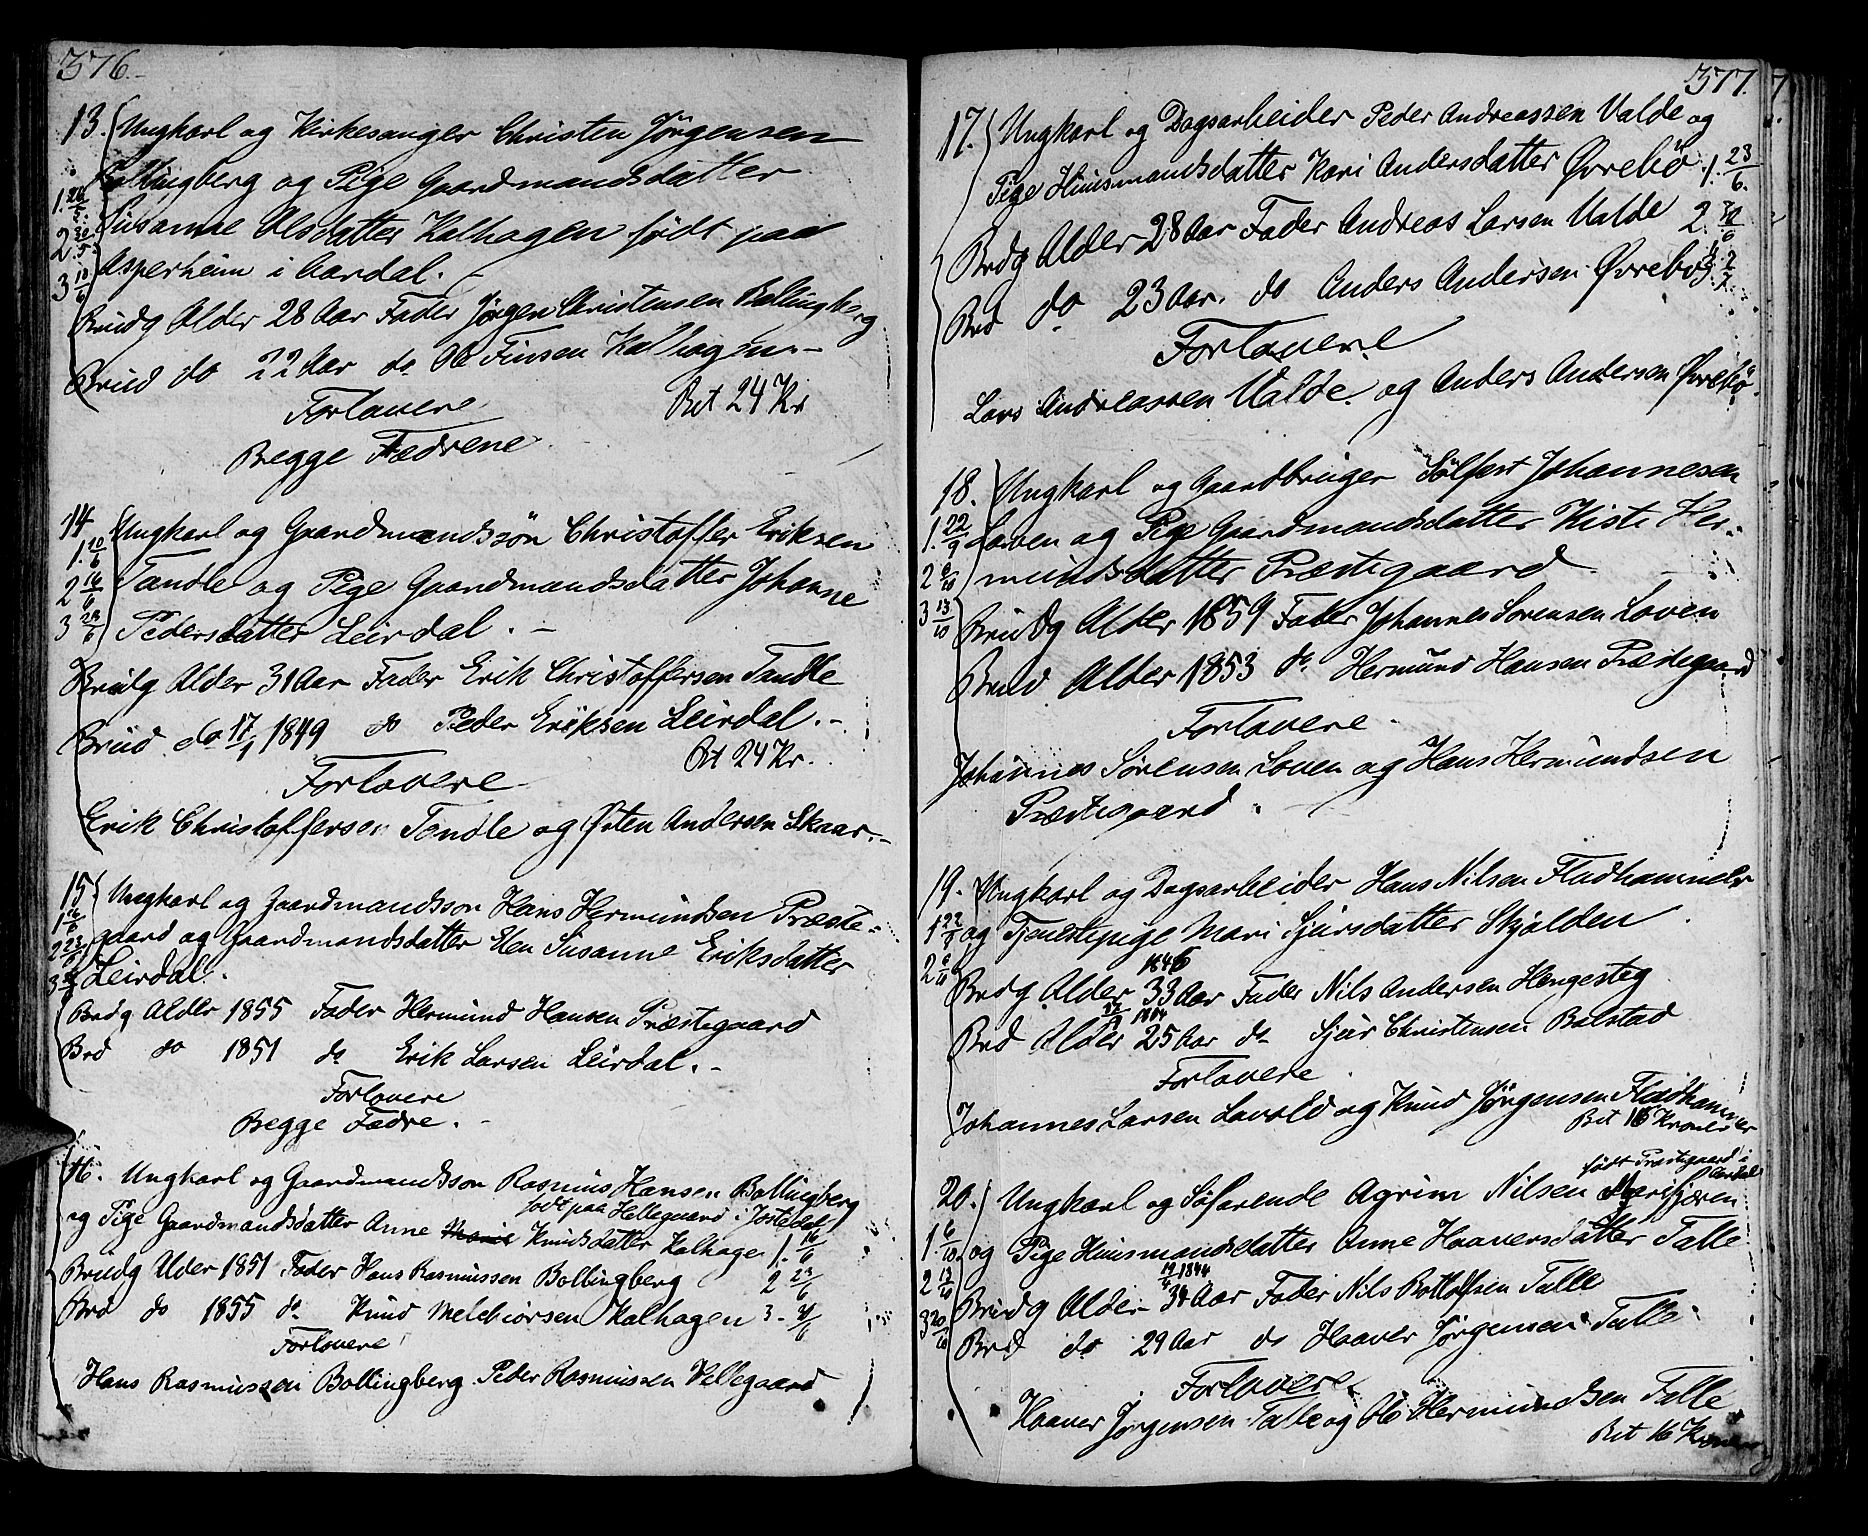 376.
13. Ungkarl og Kirkesanger Christen Jörgensen
Bollingberg og Pige Gaardmandsdatter
1. 26/5. Susanne Olsdatter Kalhagen född paa
2 30/5. Asperheim i Aardal. -
3 10/6
Brudg Alder 28 Aar Fader Jörgen Christensen Bollingberg
Brud do 22 Aar do Ole Finsen Kalhagen. -
Forlovere Bet 24 Kr
Begge Fædrene.
14 Ungkarl og Gaardmandssön Christoffer Eriksen
1. 10/6 Tandle og Pige Gaardmandsdatter Johanne
2 16/6
3 24/6 Pedersdatter Leirdal. -
Brudg Alder 31 Aar Fader Erik Christoffersen Tandle
Brud do 17/1 1849 do Peder Eriksen Leirdal. -
Forlovere Bet 24 Kr.
Erik Christoffersen Tandle og Østen Andersen Skaar. -
15 Ungkarl og Gaardmandsson Hans Hermundsen Præste-
1 16/6 gaard og Gaardmandsdatter Elen Susanne Eriksdatter
2 23/6
3 Leirdal.
Brdg Alder 1855 Fader Hermund Hansen Præstegaard
Brd do 1851 do Erik Larsen Leirdal. -
Forlovere
Begge Fædre. -
16. Ungkarl og Gaardmandsson Rasmus Hansen Bollingberg
født paa Hellegaard i Jostedal
og Pige Gaardmandsdatter Anne Marie Knudsdatter Kalhage 1. 16/6
Brudg Alder 1851 Fader Hans Rasmussen Bollingberg 2 23/6
Brd do 1855 do Knud Melchiorsen Kalhagen 3 -
Forlovere
Hans Rasmussen Bollingberg. Peder Rasmussen Hellegaard
377.
17. Ungkarl og Dagsarbeider Peder Andreassen Valde og
Pige Huusmandsdatter Kari Andersdatter Øvrebö 1. 23/6.
Brdg Alder 28 Aar Fader Andreas Larsen Valde 2. 30/6
Brd do 23 Aar. do Anders Andersen Øvrebö 3. 7/7
Forlovere
Lars Andreassen Valde. og Anders Andersen Øvrebö.
18. Ungkarl og Gaardbruger Sölfest Johannesen
1. 22/9 Loven og Pige Gaardmandsdatter Kisti Her-
2 6/10 mundsdatter Præstegaard
3 13/10 Brudg Alder 1859 Fader Johannes Sorensen Loven
Brud Alder 1853 do Hermund Hansen Præstegaard
Forlovere.
Johannes Sörensen Loven og Hans Hermundsen
Præstegaard.
19. Ungkarl og Dagsarbeider Hans Nilsen Fladhammer
1 22/9 og Tjenestepige Mari Sjursdatter Skjolden
2 6/10 1846
Brdg Alder 33 Aar Fader Nils Andersen Hengesteg
Brd Alder 25 Aar do Sjur Christensen Bolstad
Forlovere
Johannes Larsen Lavold og Knud Jörgensen Fladhammer
Bet 16 Kroner
født Præstegaard i Aardal
20. Ungkarl og Søfarende Agrim Nilsen Marifjæren
1. 6/10. og Pige Huusmandsdatter Anne Haaversdatter Talle
2 13/10 19/4 1844
Brudg Alder 34 Aar Fader Nils Bottolfsen Talle
3 20/10 Brd do 29 Aar do Haaver Jörgensen Talle
Forlovere
Haaver Jörgensen Talle og Ole Hermundsen Talle
Bet 16 Kroner